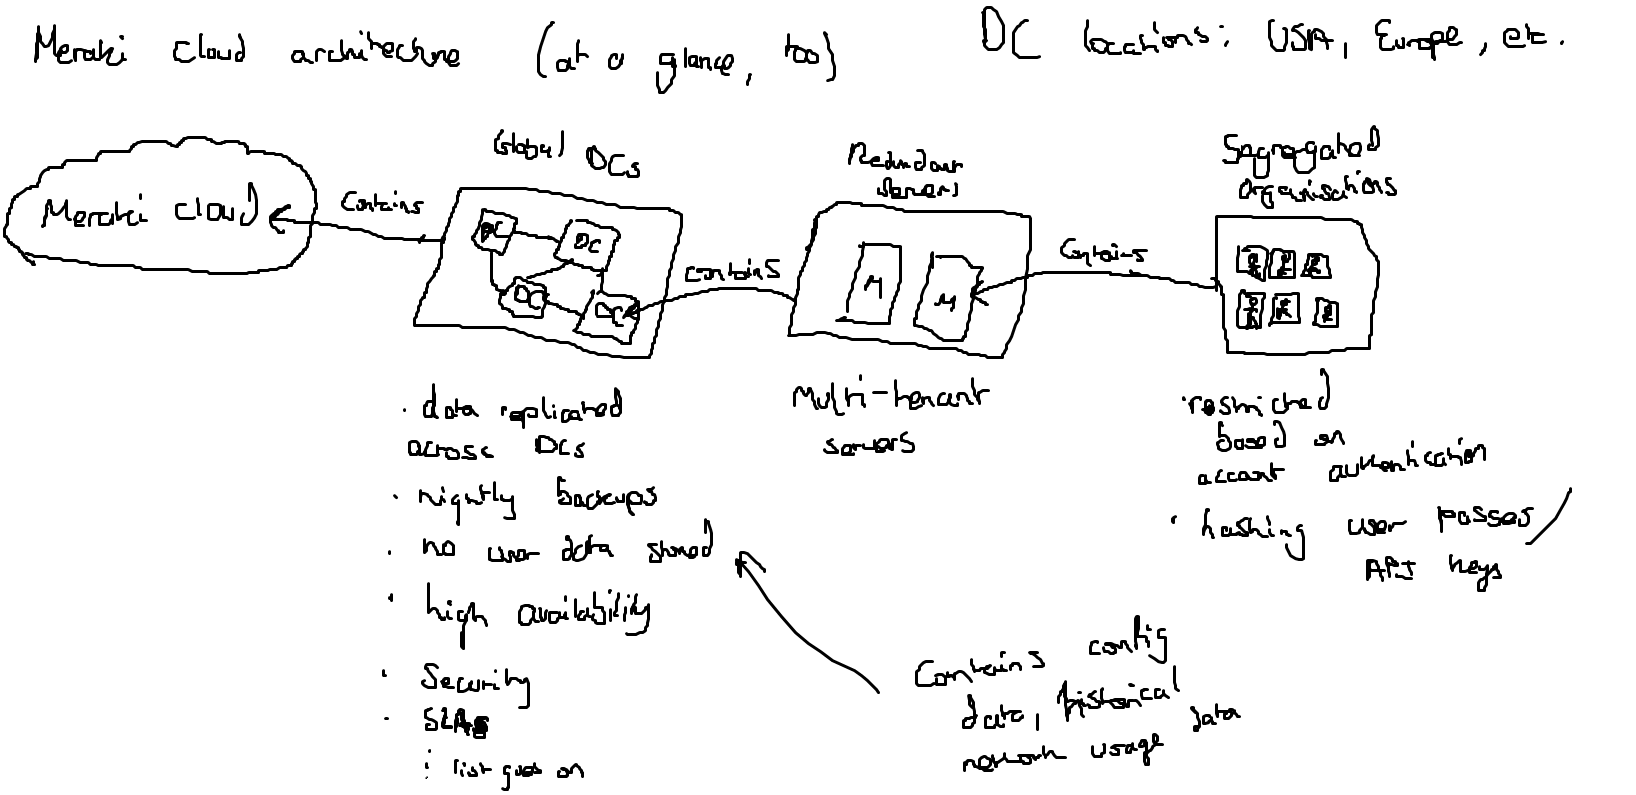 Meraki cloud architecture (at a glance, too)
DC locations: USA, Europe, etc.
Meraki cloud
Contains
Global DCs
DC
DC
DC
DC
contains
Redundant
servers
M
M
Contains
Segregated
organisations
· data replicated
across DCs
· nightly backups
· no user data stored
· high availability
· Security
· SLAs
: list goes on
Multi-tenant
servers
· restricted
based on
account authentication
· hashing user passes/
API keys
Contains config
data, historical
network usage data